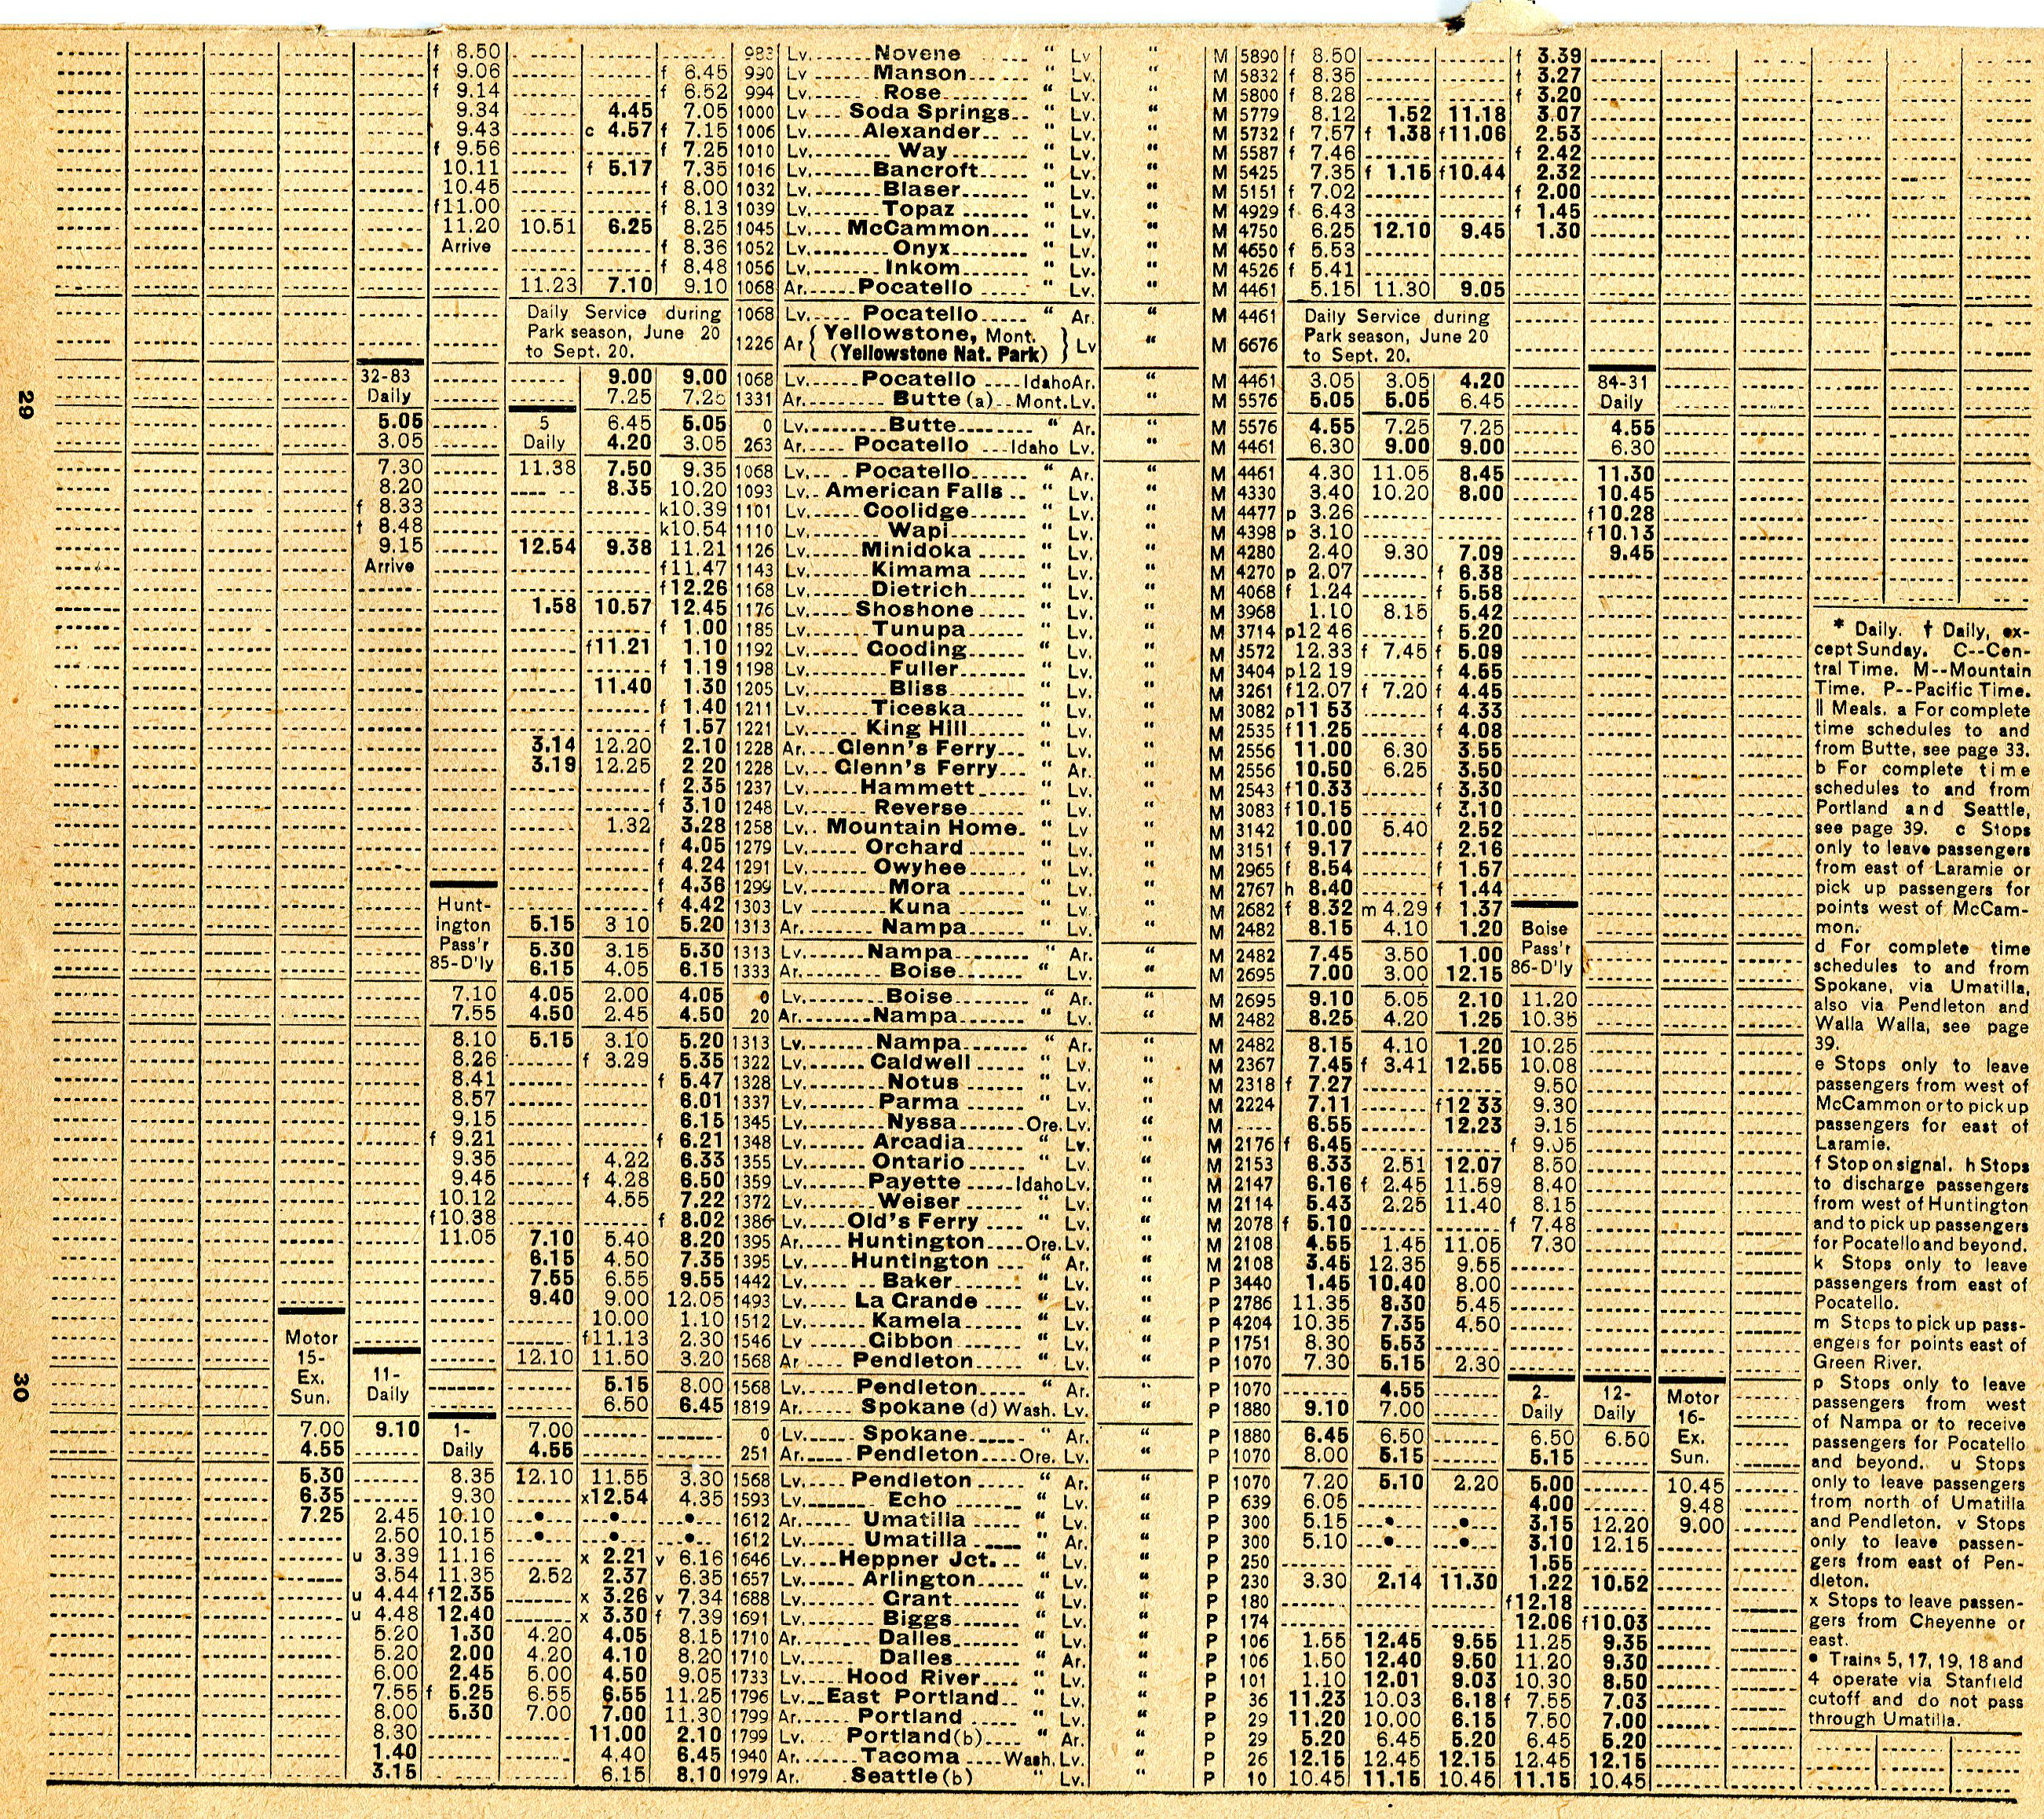 f 8.50 983 Lv. Novene " Lv " M 5890 f 8.50 f 3.39
f 9.06 f 6.45 990 Lv Manson " Lv. " M 5832 f 8.35 f 3.27
f 9.14 f 6.52 994 Lv. Rose " Lv. " M 5800 f 8.28 f 3.20
9.34 4.45 7.05 1000 Lv Soda Springs " Lv. " M 5779 8.12 1.52 11.18 3.07
9.43 c 4.57 f 7.15 1006 Lv. Alexander " Lv. " M 5732 f 7.57 f 1.38 f11.06 2.53
f 9.56 f 7.25 1010 Lv. Way " Lv. " M 5587 f 7.46 f 2.42
10.11 f 5.17 7.35 1016 Lv. Bancroft " Lv. " M 5425 7.35 f 1.15 f10.44 2.32
10.45 f 8.00 1032 Lv. Blaser " Lv. " M 5151 f 7.02 f 2.00
f11.00 f 8.13 1039 Lv. Topaz " Lv. " M 4929 f 6.43 f 1.45
11.20 10.51 6.25 8.25 1045 Lv. McCammon " Lv. " M 4750 6.25 12.10 9.45 1.30
Arrive f 8.36 1052 Lv. Onyx " Lv. " M 4650 f 5.53
f 8.48 1056 Lv. Inkom " Lv. " M 4526 f 5.41
11.23 7.10 9.10 1068 Ar. Pocatello " Lv. " M 4461 5.15 11.30 9.05
Daily Service during 1068 Lv. Pocatello " Ar. " M 4461 Daily Service during
Park season, June 20 Yellowstone, Mont. Park season, June 20
to Sept. 20. 1226 Ar (Yellowstone Nat. Park) Lv " M 6676 to Sept. 20.
32-83 9.00 9.00 1068 Lv. Pocatello Idaho Ar. " M 4461 3.05 3.05 4.20 84-31
Daily 7.25 7.25 1331 Ar. Butte (a) Mont. Lv. " M 5576 5.05 5.05 6.45 Daily
5.05 5 6.45 5.05 0 Lv. Butte " Ar. " M 5576 4.55 7.25 7.25 4.55
3.05 Daily 4.20 3.05 263 Ar. Pocatello Idaho Lv. " M 4461 6.30 9.00 9.00 6.30
7.30 11.38 7.50 9.35 1068 Lv. Pocatello " Ar. " M 4461 4.30 11.05 8.45 11.30
8.20 8.35 10.20 1093 Lv. American Falls " Lv. " M 4330 3.40 10.20 8.00 10.45
f 8.33 k10.39 1101 Lv. Coolidge " Lv. " M 4477 p 3.26 f10.28
f 8.48 k10.54 1110 Lv. Wapi " Lv. " M 4398 p 3.10 f10.13
9.15 12.54 9.38 11.21 1126 Lv. Minidoka " Lv. " M 4280 2.40 9.30 7.09 9.45
Arrive f11.47 1143 Lv. Kimama " Lv. " M 4270 p 2.07 f 6.38
f12.26 1168 Lv. Dietrich " Lv. " M 4068 f 1.24 f 5.58
1.58 10.57 12.45 1176 Lv. Shoshone " Lv. " M 3968 1.10 8.15 5.42
f 1.00 1185 Lv. Tunupa " Lv. " M 3714 p12 46 f 5.20
f11.21 1.10 1192 Lv. Gooding " Lv. " M 3572 12.33 f 7.45 f 5.09
f 1.19 1198 Lv. Fuller " Lv. " M 3404 p12 19 f 4.55
11.40 1.30 1205 Lv. Bliss " Lv. " M 3261 f12.07 f 7.20 f 4.45
f 1.40 1211 Lv. Ticeska " Lv. " M 3082 p11 53 f 4.33
f 1.57 1221 Lv. King Hill " Lv. " M 2535 f11.25 f 4.08
3.14 12.20 2.10 1228 Ar. Glenn's Ferry " Lv. " M 2556 11.00 6.30 3.55
3.19 12.25 2.20 1228 Lv. Glenn's Ferry " Ar. " M 2556 10.50 6.25 3.50
f 2.35 1237 Lv. Hammett " Lv. " M 2543 f10.33 f 3.30
f 3.10 1248 Lv. Reverse " Lv. " M 3083 f10.15 f 3.10
1.32 3.28 1258 Lv. Mountain Home. " Lv " M 3142 10.00 5.40 2.52
f 4.05 1279 Lv. Orchard " Lv. " M 3151 f 9.17 f 2.16
f 4.24 1291 Lv. Owyhee " Lv. " M 2965 f 8.54 f 1.57
f 4.36 1299 Lv. Mora " Lv. " M 2767 h 8.40 f 1.44
Hunt- f 4.42 1303 Lv Kuna " Lv. " M 2682 f 8.32 m 4.29 f 1.37
ington 5.15 3 10 5.20 1313 Ar. Nampa " Lv. " M 2482 8.15 4.10 1.20 Boise
Pass'r 5.30 3.15 5.30 1313 Lv. Nampa " Ar. " M 2482 7.45 3.50 1.00 Pass'r
85-D'ly 6.15 4.05 6.15 1333 Ar. Boise " Lv. " M 2695 7.00 3.00 12.15 86-D'ly
7.10 4.05 2.00 4.05 0 Lv. Boise " Ar. " M 2695 9.10 5.05 2.10 11.20
7.55 4.50 2.45 4.50 20 Ar. Nampa " Lv. " M 2482 8.25 4.20 1.25 10.35
8.10 5.15 3.10 5.20 1313 Lv. Nampa " Ar. " M 2482 8.15 4.10 1.20 10.25
8.26 f 3.29 5.35 1322 Lv. Caldwell " Lv. " M 2367 7.45 f 3.41 12.55 10.08
8.41 f 5.47 1328 Lv. Notus " Lv. " M 2318 f 7.27 9.50
8.57 6.01 1337 Lv. Parma " Lv. " M 2224 7.11 f12 33 9.30
9.15 6.15 1345 Lv. Nyssa Ore. Lv. " M 6.55 12.23 9.15
f 9.21 f 6.21 1348 Lv. Arcadia " Lv. " M 2176 f 6.45 f 9.05
9.35 4.22 6.33 1355 Lv. Ontario " Lv. " M 2153 6.33 2.51 12.07 8.50
9.45 f 4.28 6.50 1359 Lv. Payette Idaho Lv. " M 2147 6.16 f 2.45 11.59 8.40
10.12 4.55 7.22 1372 Lv. Weiser " Lv. " M 2114 5.43 2.25 11.40 8.15
f10.38 f 8.02 1386 Lv. Old's Ferry " Lv. " M 2078 f 5.10 f 7.48
11.05 7.10 5.40 8.20 1395 Ar. Huntington Ore. Lv. " M 2108 4.55 1.45 11.05 7.30
6.15 4.50 7.35 1395 Lv. Huntington " Ar. " M 2108 3.45 12.35 9.55
7.55 6.55 9.55 1442 Lv. Baker " Lv. " P 3440 1.45 10.40 8.00
9.40 9.00 12.05 1493 Lv. La Grande " Lv. " P 2786 11.35 8.30 5.45
10.00 1.10 1512 Lv. Kamela " Lv. " P 4204 10.35 7.35 4.50
Motor f11.13 2.30 1546 Lv Gibbon " Lv. " P 1751 8.30 5.53
15- 12.10 11.50 3.20 1568 Ar Pendleton " Lv. " P 1070 7.30 5.15 2.30
Ex. 11- 5.15 8.00 1568 Lv. Pendleton " Ar. " P 1070 4.55 2- 12- Motor
Sun. Daily 6.50 6.45 1819 Ar. Spokane (d) Wash. Lv. " P 1880 9.10 7.00 Daily Daily 16-
7.00 9.10 1- 7.00 0 Lv. Spokane " Ar. " P 1880 6.45 6.50 6.50 6.50 Ex.
4.55 Daily 4.55 251 Ar. Pendleton Ore. Lv. " P 1070 8.00 5.15 5.15 Sun.
5.30 8.35 12.10 11.55 3.30 1568 Lv. Pendleton " Ar. " P 1070 7.20 5.10 2.20 5.00 10.45
6.35 9.30 x12.54 4.35 1593 Lv. Echo " Lv. " P 639 6.05 4.00 9.48
7.25 2.45 10.10 • • • 1612 Ar. Umatilla " Lv. " P 300 5.15 • • 3.15 12.20 9.00
2.50 10.15 • • • 1612 Lv. Umatilla " Ar. " P 300 5.10 • • 3.10 12.15
u 3.39 11.16 x 2.21 v 6.16 1646 Lv. Heppner Jct. " Lv. " P 250 1.55
3.54 11.35 2.52 2.37 6.35 1657 Lv. Arlington " Lv. " P 230 3.30 2.14 11.30 1.22 10.52
u 4.44 f12.35 x 3.26 v 7.34 1688 Lv. Grant " Lv. " P 180 f12.18
u 4.48 12.40 x 3.30 f 7.39 1691 Lv. Biggs " Lv. " P 174 12.06 f10.03
5.20 1.30 4.20 4.05 8.15 1710 Ar. Dalles " Lv. " P 106 1.55 12.45 9.55 11.25 9.35
5.20 2.00 4.20 4.10 8.20 1710 Lv. Dalles " Ar. " P 106 1.50 12.40 9.50 11.20 9.30
6.00 2.45 5.00 4.50 9.05 1733 Lv. Hood River " Lv. " P 101 1.10 12.01 9.03 10.30 8.50
7.55 f 5.25 6.55 6.55 11.25 1796 Lv. East Portland " Lv. " P 36 11.23 10.03 6.18 f 7.55 7.03
8.00 5.30 7.00 7.00 11.30 1799 Ar. Portland " Lv. " P 29 11.20 10.00 6.15 7.50 7.00
8.30 11.00 2.10 1799 Lv. Portland (b) " Ar. " P 29 5.20 6.45 5.20 6.45 5.20
1.40 4.40 6.45 1940 Ar. Tacoma Wash. Lv. " P 26 12.15 12.45 12.15 12.45 12.15
3.15 6.15 8.10 1979 Ar. Seattle (b) " Lv. " P 10 10.45 11.15 10.45 11.15 10.45
* Daily. † Daily, ex-
cept Sunday. C--Cen-
tral Time. M--Mountain
Time. P--Pacific Time.
‖ Meals. a For complete
time schedules to and
from Butte, see page 33.
b For complete time
schedules to and from
Portland and Seattle,
see page 39. c Stops
only to leave passengers
from east of Laramie or
pick up passengers for
points west of McCam-
mon.
d For complete time
schedules to and from
Spokane, via Umatilla,
also via Pendleton and
Walla Walla, see page
39.
e Stops only to leave
passengers from west of
McCammon or to pick up
passengers for east of
Laramie.
f Stop on signal. h Stops
to discharge passengers
from west of Huntington
and to pick up passengers
for Pocatello and beyond.
k Stops only to leave
passengers from east of
Pocatello.
m Stops to pick up pass-
engers for points east of
Green River.
p Stops only to leave
passengers from west
of Nampa or to receive
passengers for Pocatello
and beyond. u Stops
only to leave passengers
from north of Umatilla
and Pendleton. v Stops
only to leave passen-
gers from east of Pen-
dleton.
x Stops to leave passen-
gers from Cheyenne or
east.
• Trains 5, 17, 19, 18 and
4 operate via Stanfield
cutoff and do not pass
through Umatilla.
29
30